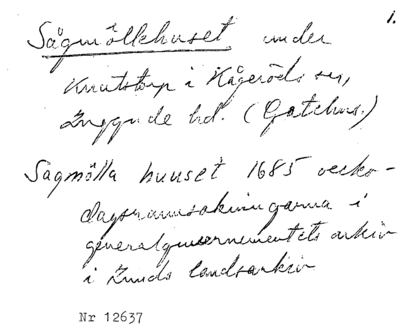 1.
Sågmöllehuset under
Knutstorp i Kågeröds sn,
Luggude hd. (Gatehus.)
Sagmölla huuset 1685 vecko-
dagsrannsakningarna i
generalguvernementets arkiv
i Lunds landsarkiv
Nr 12637